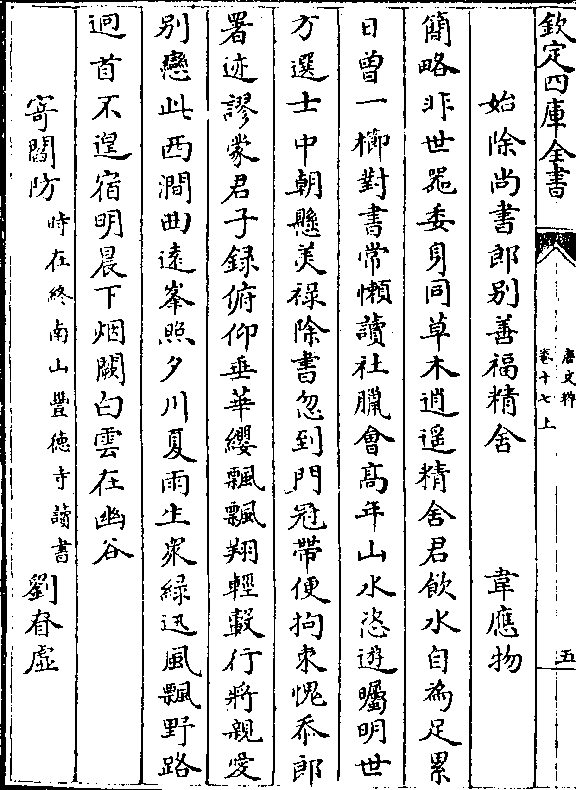 欽定四庫全書
唐文粹
卷十七上
五
始除尚書郎别善福精舍 韋應物
簡略非世器委身同草木逍遥精舍君飲水自為足累
日曾一櫛對書常懶讀社臘會髙年山水恣遊矚明世
方選士中朝懸美禄除書忽到門冠帶便拘束愧忝郎
署迹謬蒙君子録俯仰垂華纓飄飄翔輕轂行將親愛
别戀此西澗曲遠峯照夕川夏雨生衆緑迅風飄野路
迴首不遑宿明晨下烟闕白雲在幽谷
寄閻防 時在終南山豐徳寺讀書 劉眘虛